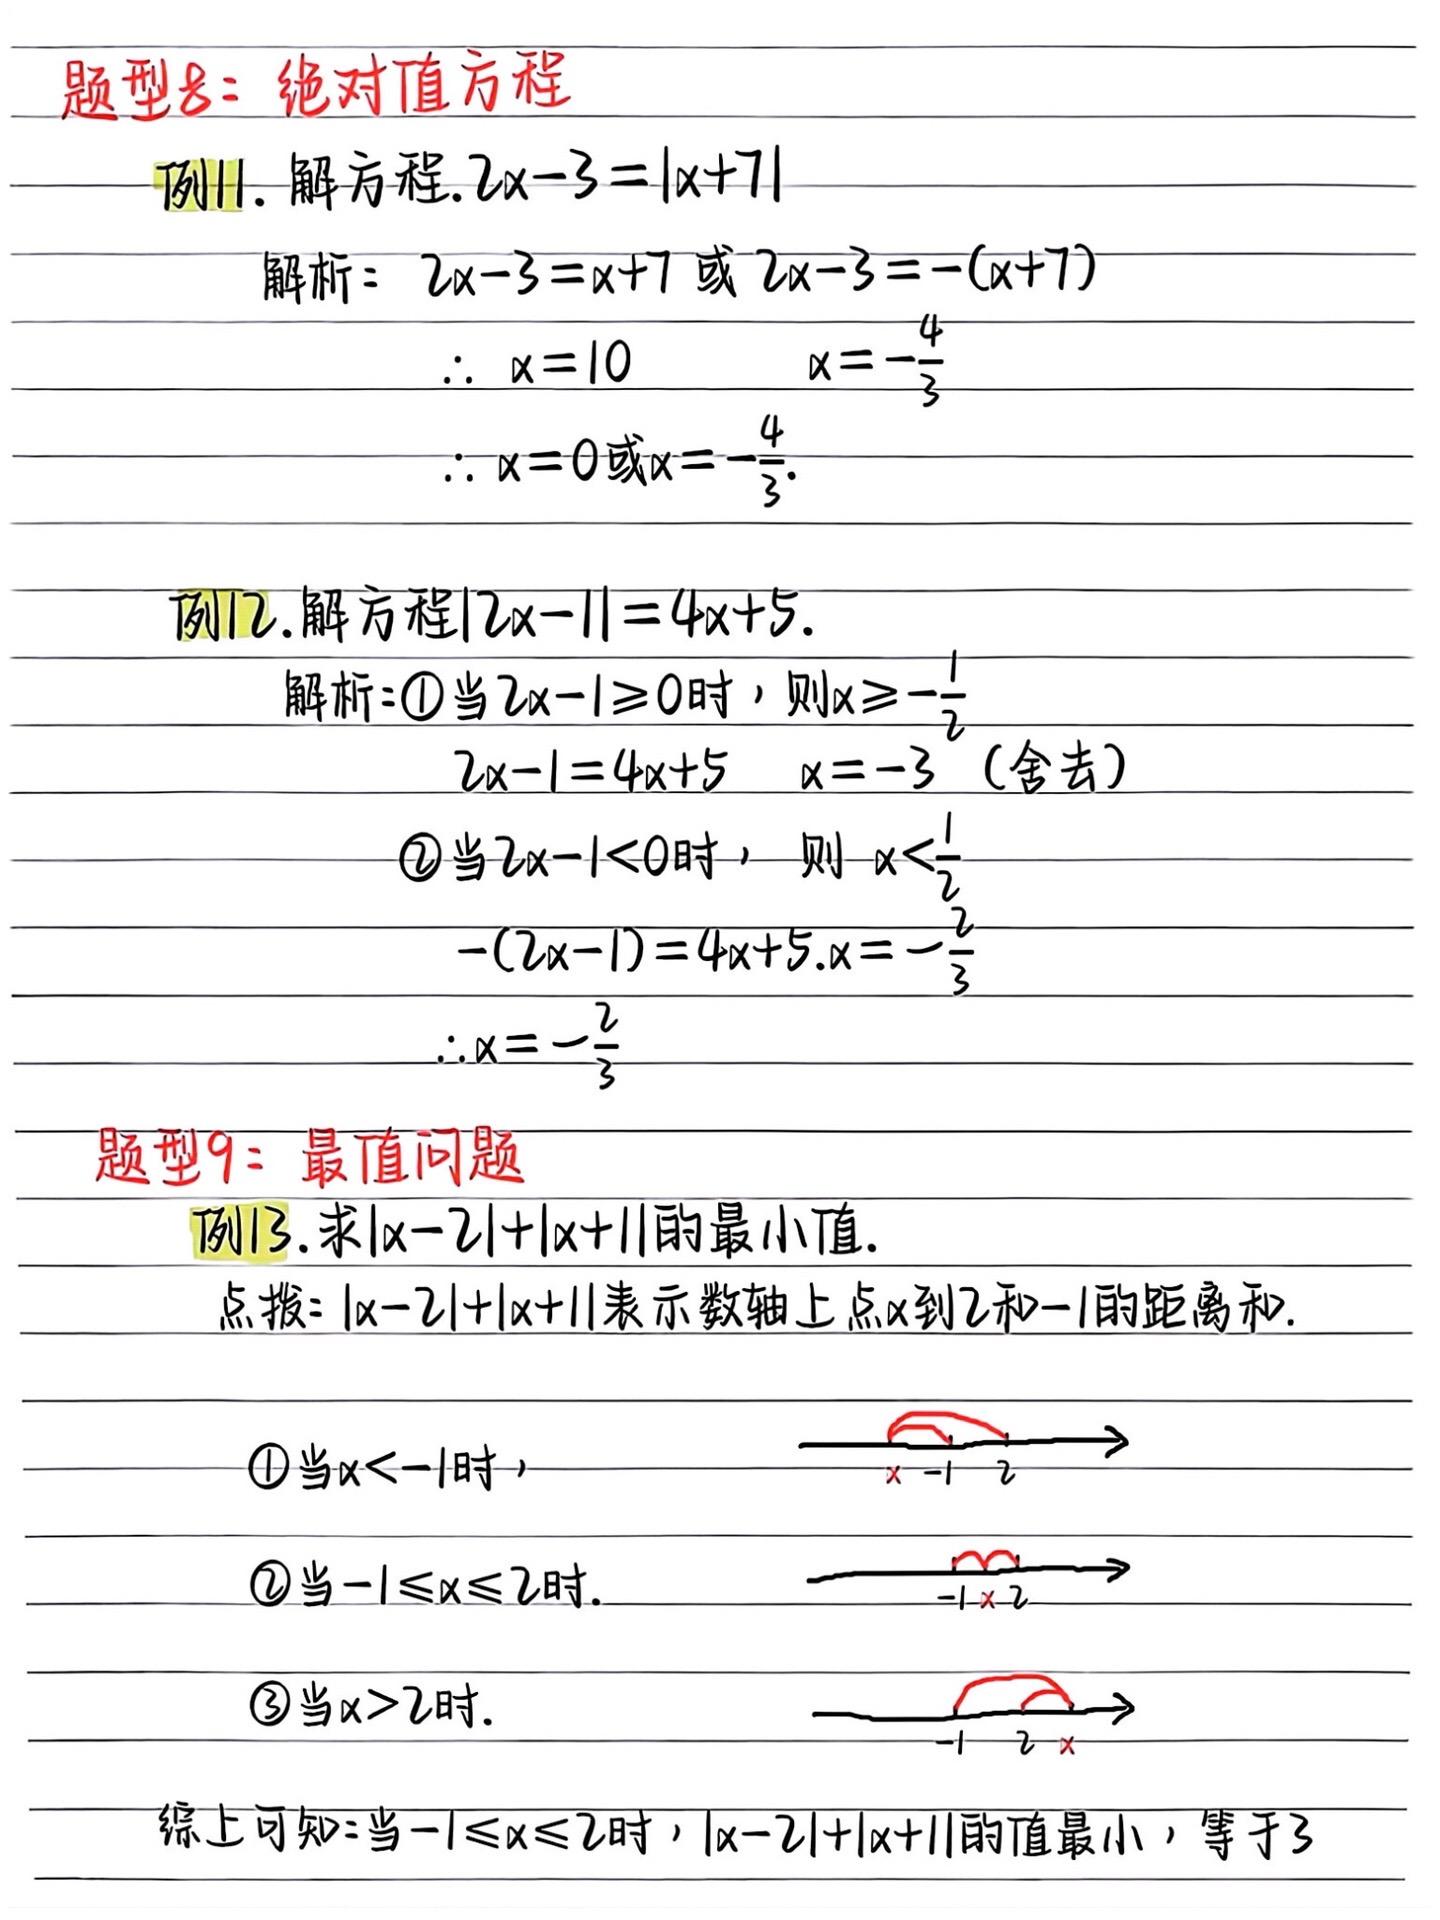 题型8：绝对值方程
例11.解方程.2x-3=|x+7|
解析：2x-3=x+7 或 2x-3=-(x+7)
∴ x=10 x=-4/3
∴ x=0或x=-4/3.
例12.解方程|2x-1|=4x+5.
解析:①当2x-1≥0时，则x≥-1/2
2x-1=4x+5 x=-3（舍去）
②当2x-1<0时，则 x<1/2
-(2x-1)=4x+5.x=-2/3
∴x=-2/3
题型9：最值问题
例13.求|x-2|+|x+1|的最小值.
点拨：|x-2|+|x+1|表示数轴上点x到2和-1的距离和.
①当x<-1时，
x -1 2
②当-1≤x≤2时.
-1 x 2
③当x>2时.
-1 2 x
综上可知:当-1≤x≤2时，|x-2|+|x+1|的值最小，等于3